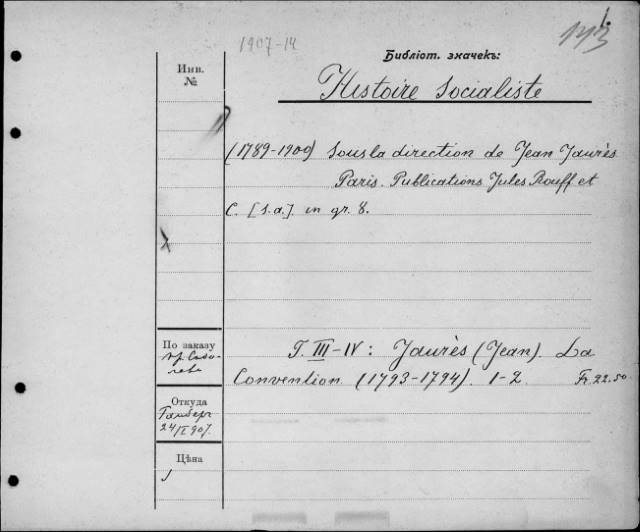 1907-14
Библіот. значекъ:
Инв.
№
Histoire Socialiste
(1789-1900) Sous la direction de Jean Jaurès
Paris. Publications Jules Rouff et
C. [s.a.]. in gr. 8.
По заказу
T. III-IV: Jaurès (Jean). La
Convention (1793-1794). 1-2. Fr. 22.50
Откуда
24/I 907.
Цѣна